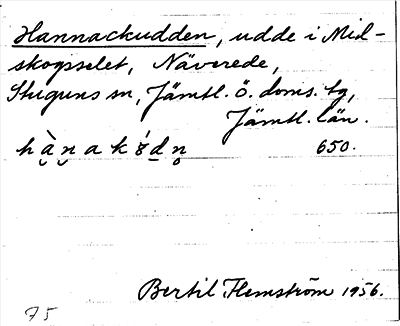 Hannackudden, udde i Mid-
skogsselet, Näverede,
Stuguns sn, Jämtl. ö. doms. tg,
Jämtl. län.
650.
Bertil Flemström 1956.
75